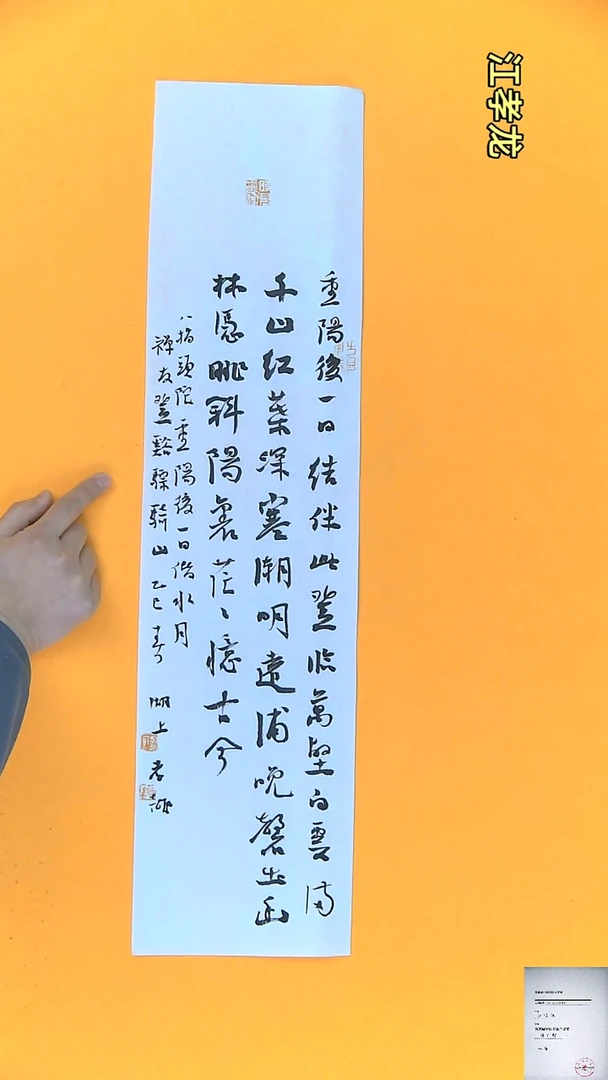 江孝龙
重陽後一日結伴此登臨萬壑白雲滿
千山紅葉深寒潮明遠浦晚磬出幽
林憑眺斜陽裏茫〻憶古今
八指頭陀重陽後一日偕水月
禪友登谿騾騎山乙巳
湖上